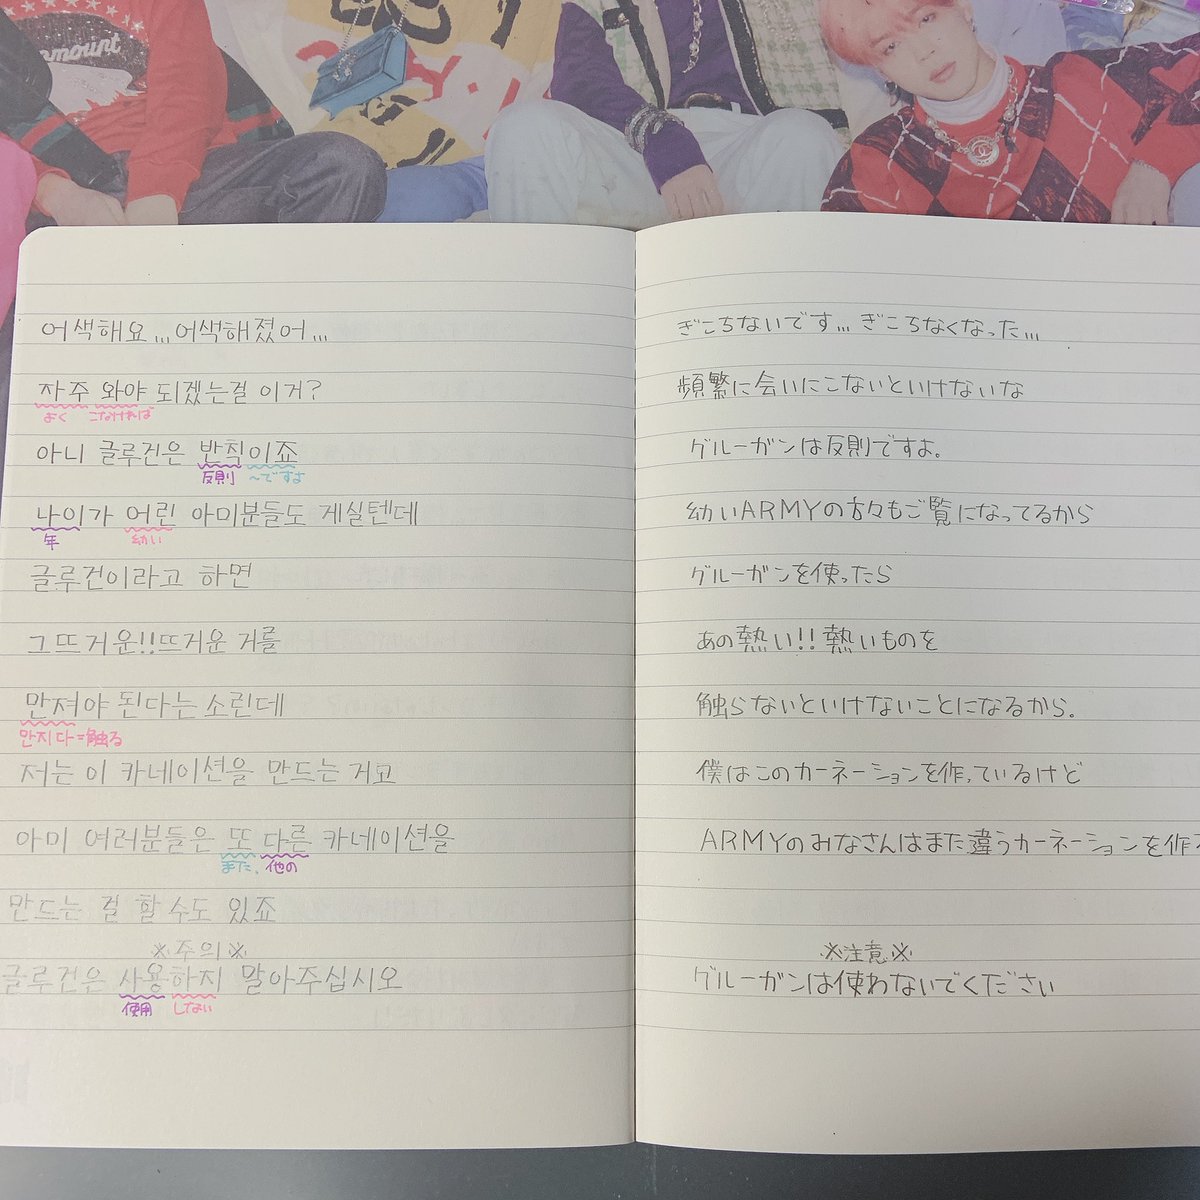 amount
어색해요... 어색해졌어...
자주 와야 되겠는걸 이거?
よく こなければ
아니 글루건은 반칙이죠
反則 ~ですよ
나이가 어린 아미분들도 계실텐데
年 幼い
글루건이라고 하면
그 뜨거운!! 뜨거운 거를
만져야 된다는 소린데
만지다=触る
저는 이 카네이션을 만드는거고
아미 여러분들은 또 다른 카네이션을
また、 他の
만드는 걸 할 수도 있죠
※주의※
글루건은 사용하지 말아주십시오
使用 しない
ぎこちないです... ぎころなくなった...
頻繁に会いにこないといけないな
グルーガンは反則ですよ。
幼いARMYの方々もご覧になってるから
グルーガンを使ったら
あの熱い!! 熱いものを
触らないといけないことになるから。
僕はこのカーネーションを作っているけど
ARMYのみなさんはまた違うカーネーションを作
※注意※
グルーガンは使わないでください